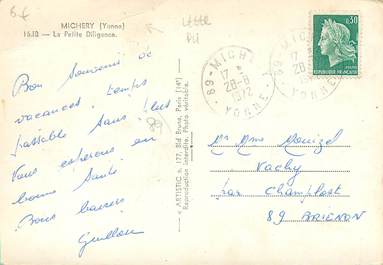 6€
MICHERY (Yonne)
1610 — La Petite Diligence.
89 - MICHERY
17 H
28-8
1972
YONNE
0,30
Bon souvenir de
vacances, temps
passable sans plus
Vous espérons en
bonne Santé
Bons baisers
Guillou
89
« ARTISTIC », 177, Bld Brune, Paris (14e)
Reproduction Interdite. Photo véritable.
Mr Mme Mouizel
Vachy
par Champlost
89 BRIENON